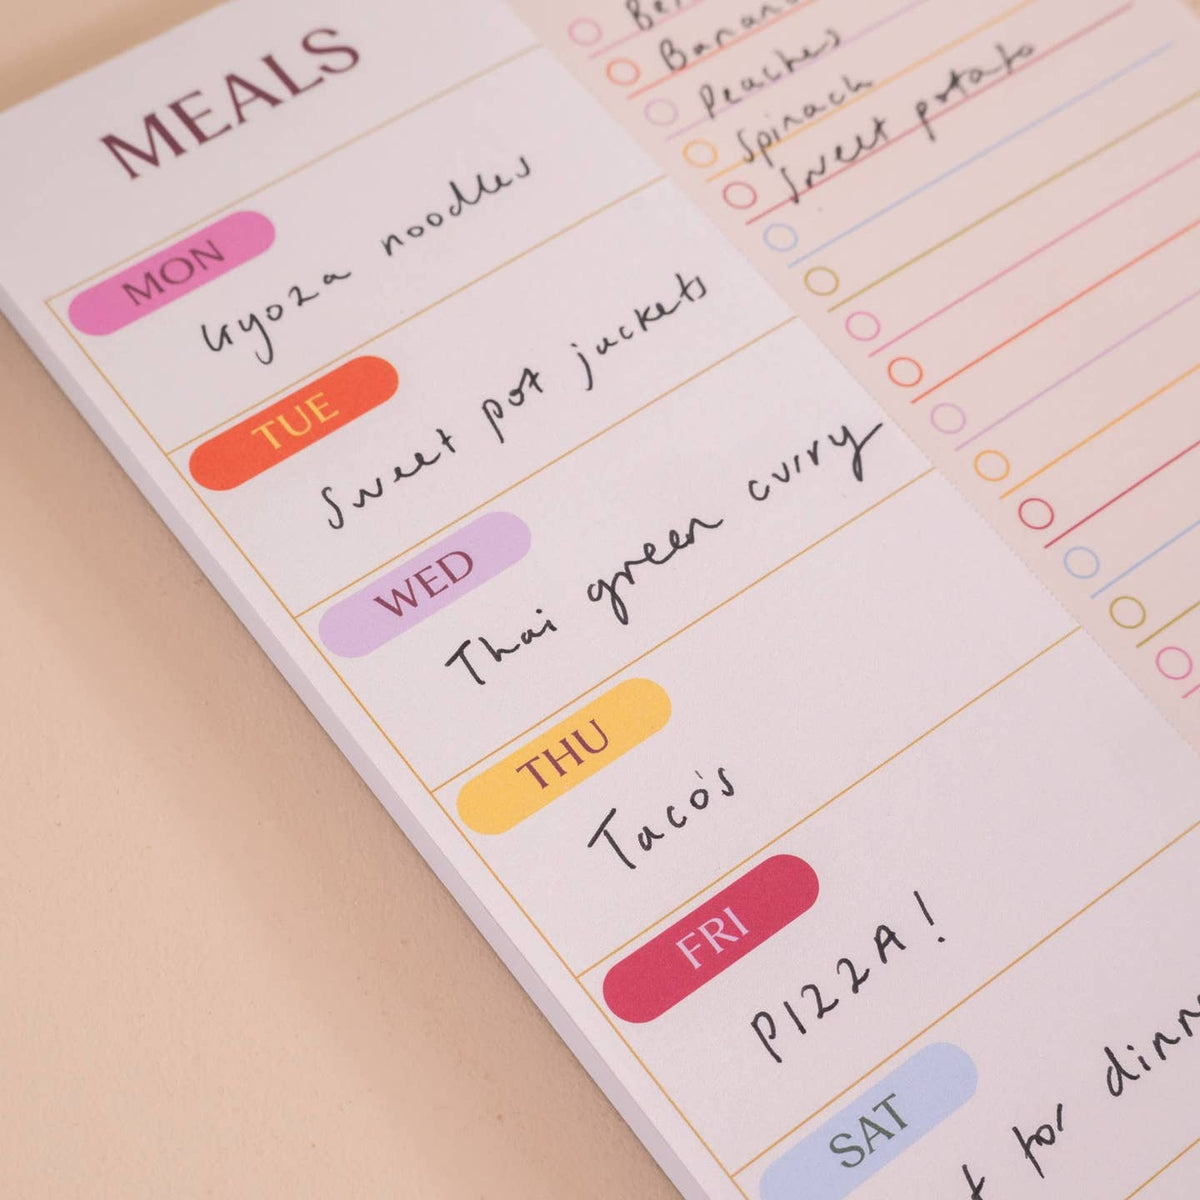 MEALS
MON
Gyoza noodles
TUE
Sweet pot jackets
WED
Thai green curry
THU
Taco's
FRI
PIZZA!
SAT
for
Peaches
Spinach
Sweet potato